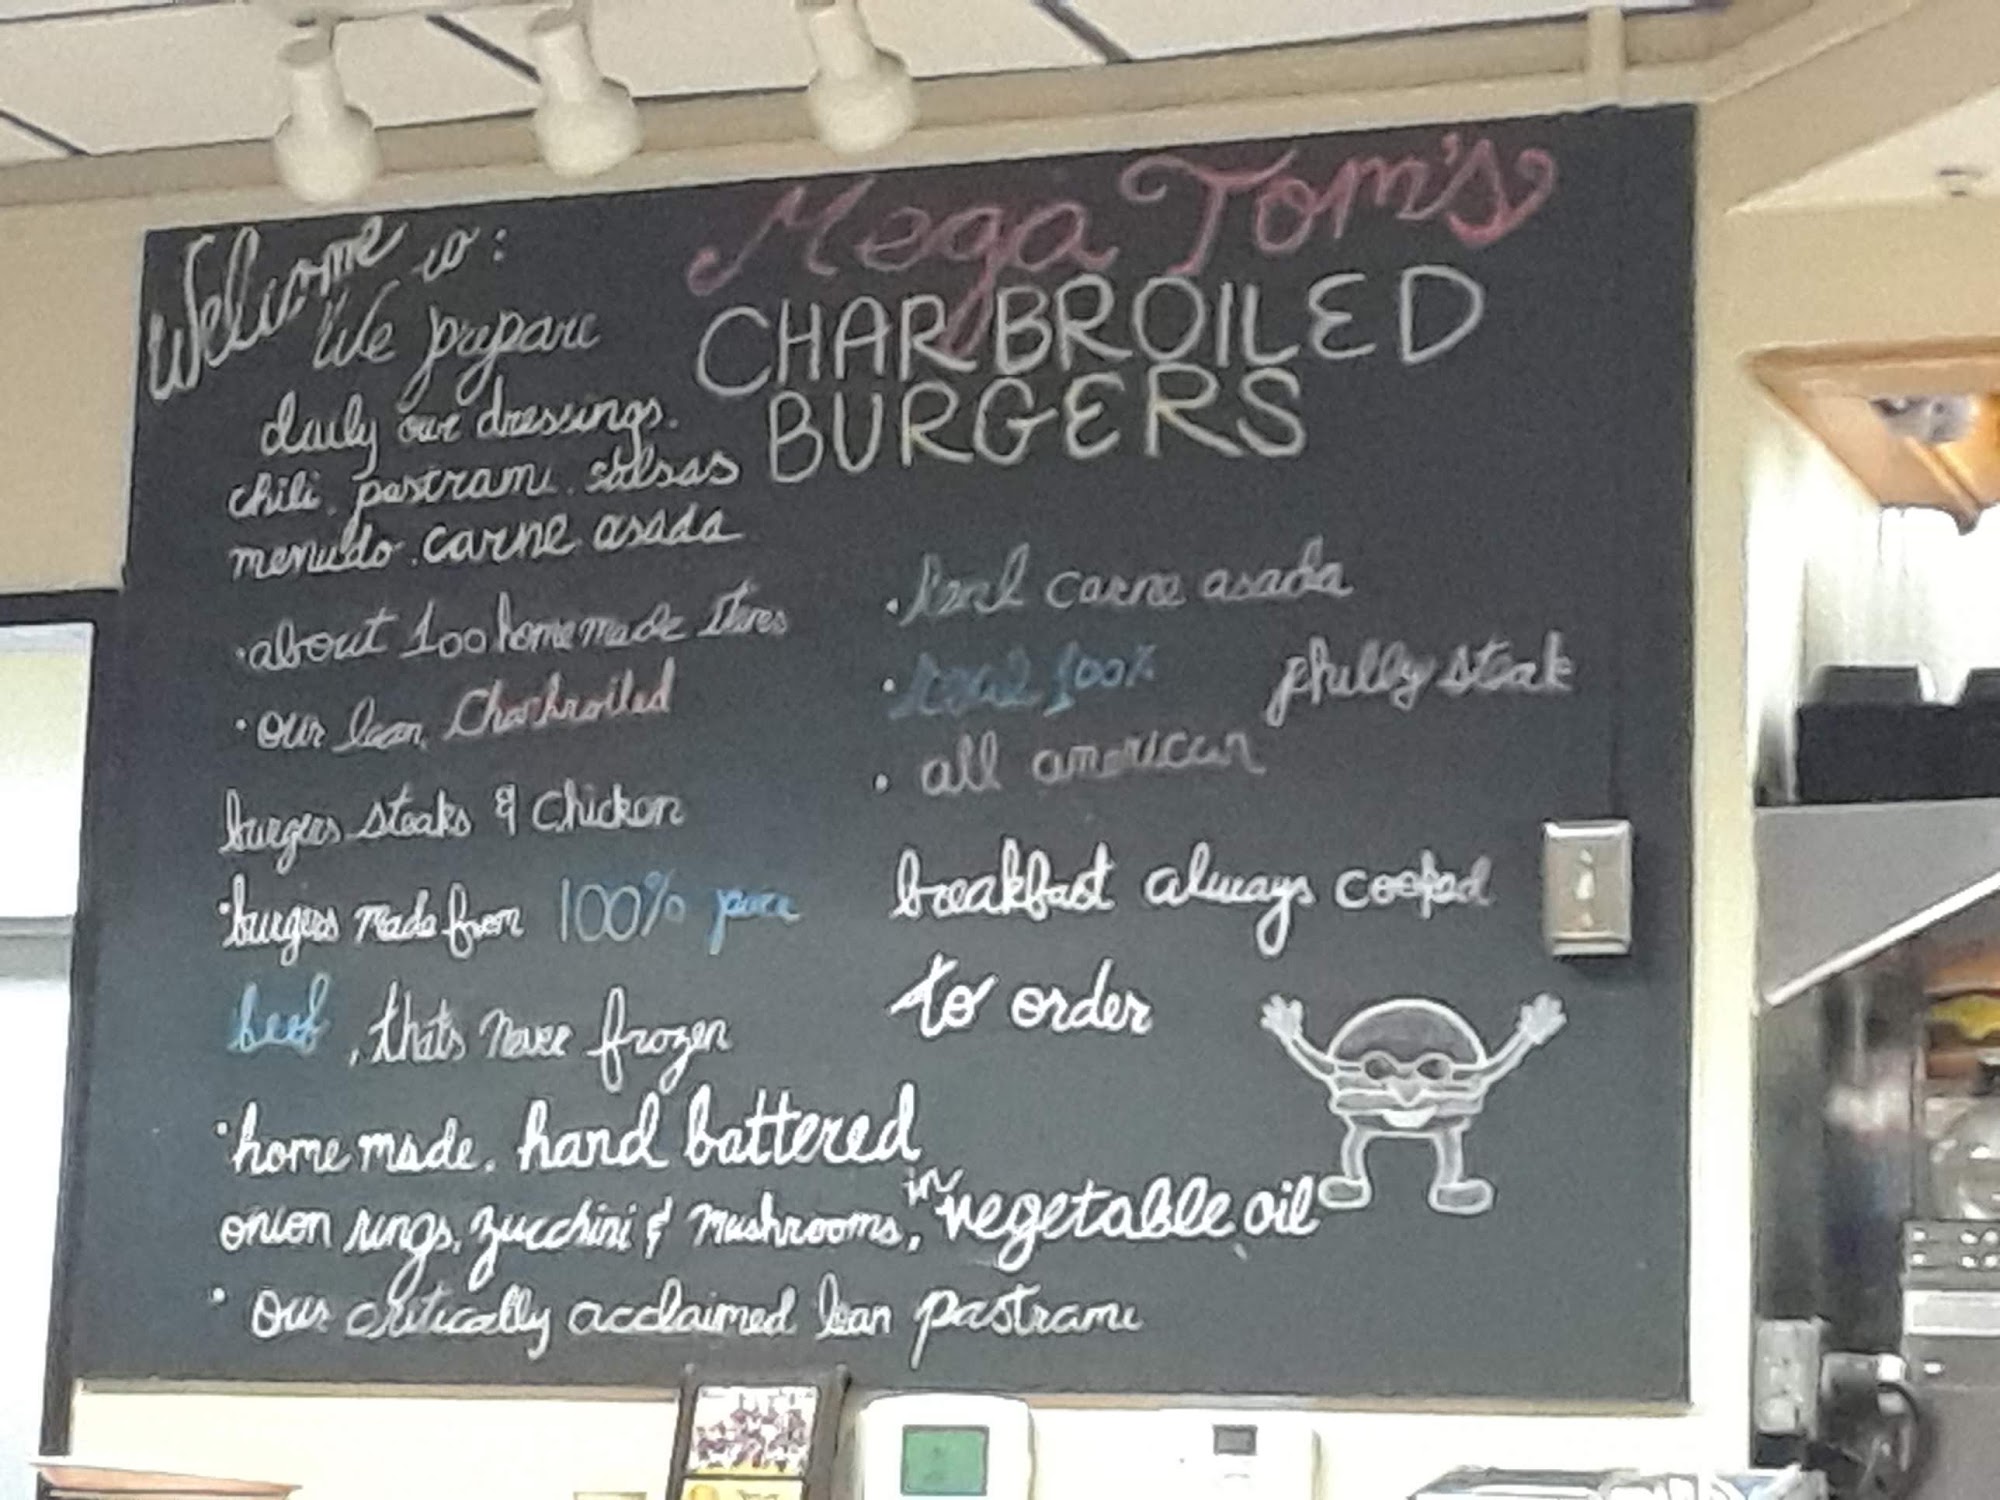 Welcome to:
Mega Tom's
CHARBROILED
BURGERS
We prepare
daily our dressings.
chili. pastrami. salsas
menudo. carne asada
• about 100 homemade items
• our lean, Charbroiled
burgers steaks & chicken
• burgers made from 100% pure
beef, thats never frozen
• home made, hand battered
onion rings, zucchini & mushrooms, in vegetable oil
• our critically acclaimed lean pastrami
• Real carne asada
• Real 100% philly steak
• all american
breakfast always cooked
to order